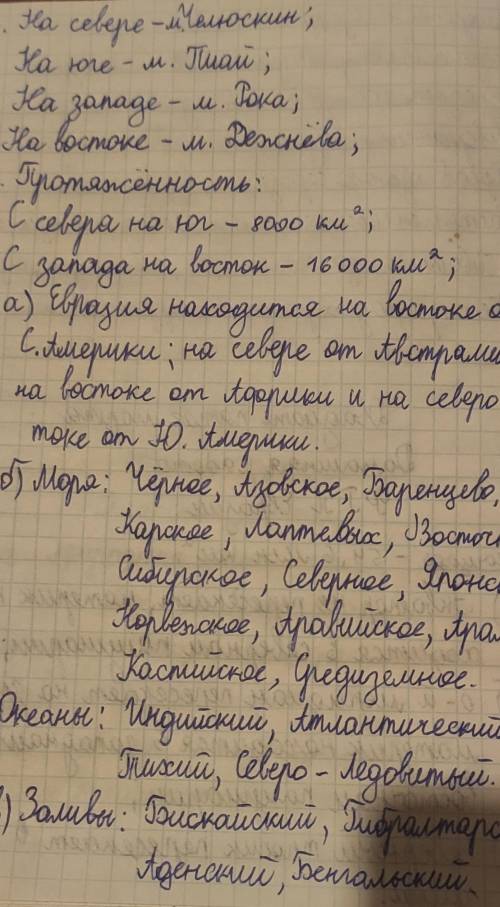 . На севере - м. Челюскин;
На юге - м. Пиай;
На западе - м. Рока;
На востоке - м. Дежнёва;
. Протяжённость:
С севера на юг - 8000 км²;
С запада на восток - 16 000 км²;
а) Евразия находится на востоке о
С. Америки; на севере от Австрали
на востоке от Африки и на северо
токе от Ю. Америки.
б) Моря: Чёрное, Азовское, Баренцево,
Карское, Лаптевых, Восточн
Сибирское, Северное, Японс
Норвежское, Аравийское, Арал
Каспийское, Средиземное.
Океаны: Индийский, Атлантический
Тихий, Северо-Ледовитый.
) Заливы: Бискайский, Гибралтарс
Аденский, Бенгальский.